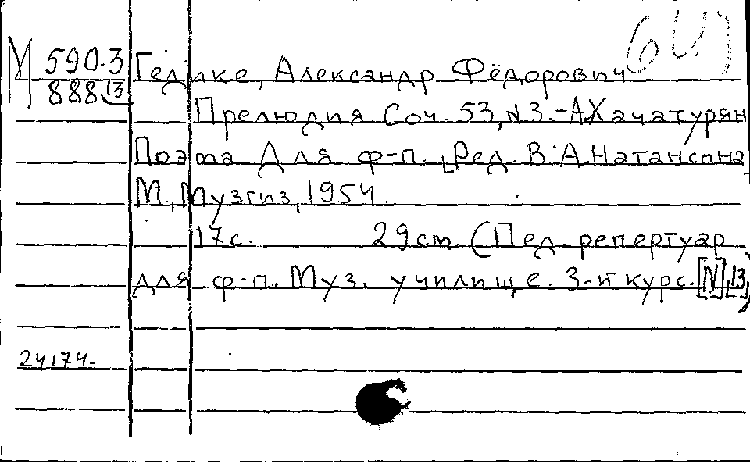 М 590.3 Гедике, Александр Фёдорович
888 13
Прелюдия Соч. 53, №3.-А.Хачатурян
Поэма Для ф-п. Ред. В.А.Натансона
М., Музгиз, 1954
17с. 29cm (Пед. репертуар
для ф-п. Муз. училище. 3-й курс. [N],13)
24174.